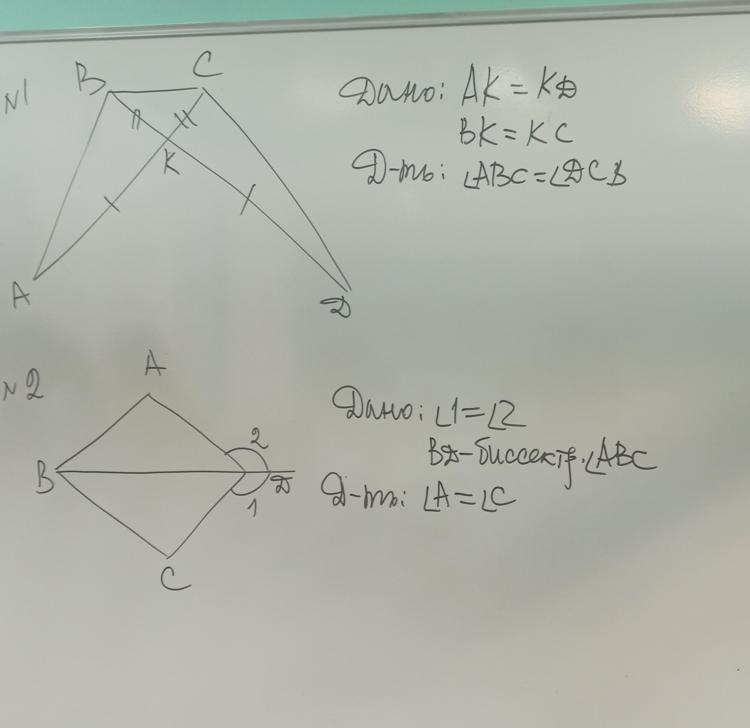 N1
B
C
K
A
D
Дано: AK = KD
BK = KC
Д-ть: ∠ABC = ∠DCB
N2
A
B
2
D
1
C
Дано: ∠1 = ∠2
BD - биссектр. ∠ABC
Д-ть: ∠A = ∠C